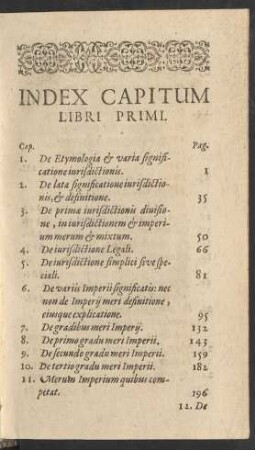 INDEX CAPITUM
LIBRI PRIMI.
Cap. Pag.
1. De Etymologia & varia signifi-
catione iurisdictionis. 1
2. De lata significatione iurisdictio-
nis, & definitione. 35
3. De prima iurisdictionis diuisio-
ne, in iurisdictionem & imperi-
um merum & mixtum. 50
4. De iurisdictione Legali. 66
5. De iurisdictione simplici sive spe-
ciali. 81
6. De variis Imperii significatis: nec
non de Imperij meri definitione,
eiusque explicatione. 95
7. De gradibus meri Imperij. 132
8. De primo gradu meri Imperii. 143
9. De secundo gradu meri Imperii. 159
10. De tertio gradu meri Imperii. 182
11. Merum Imperium quibus com-
petat. 196
12. De